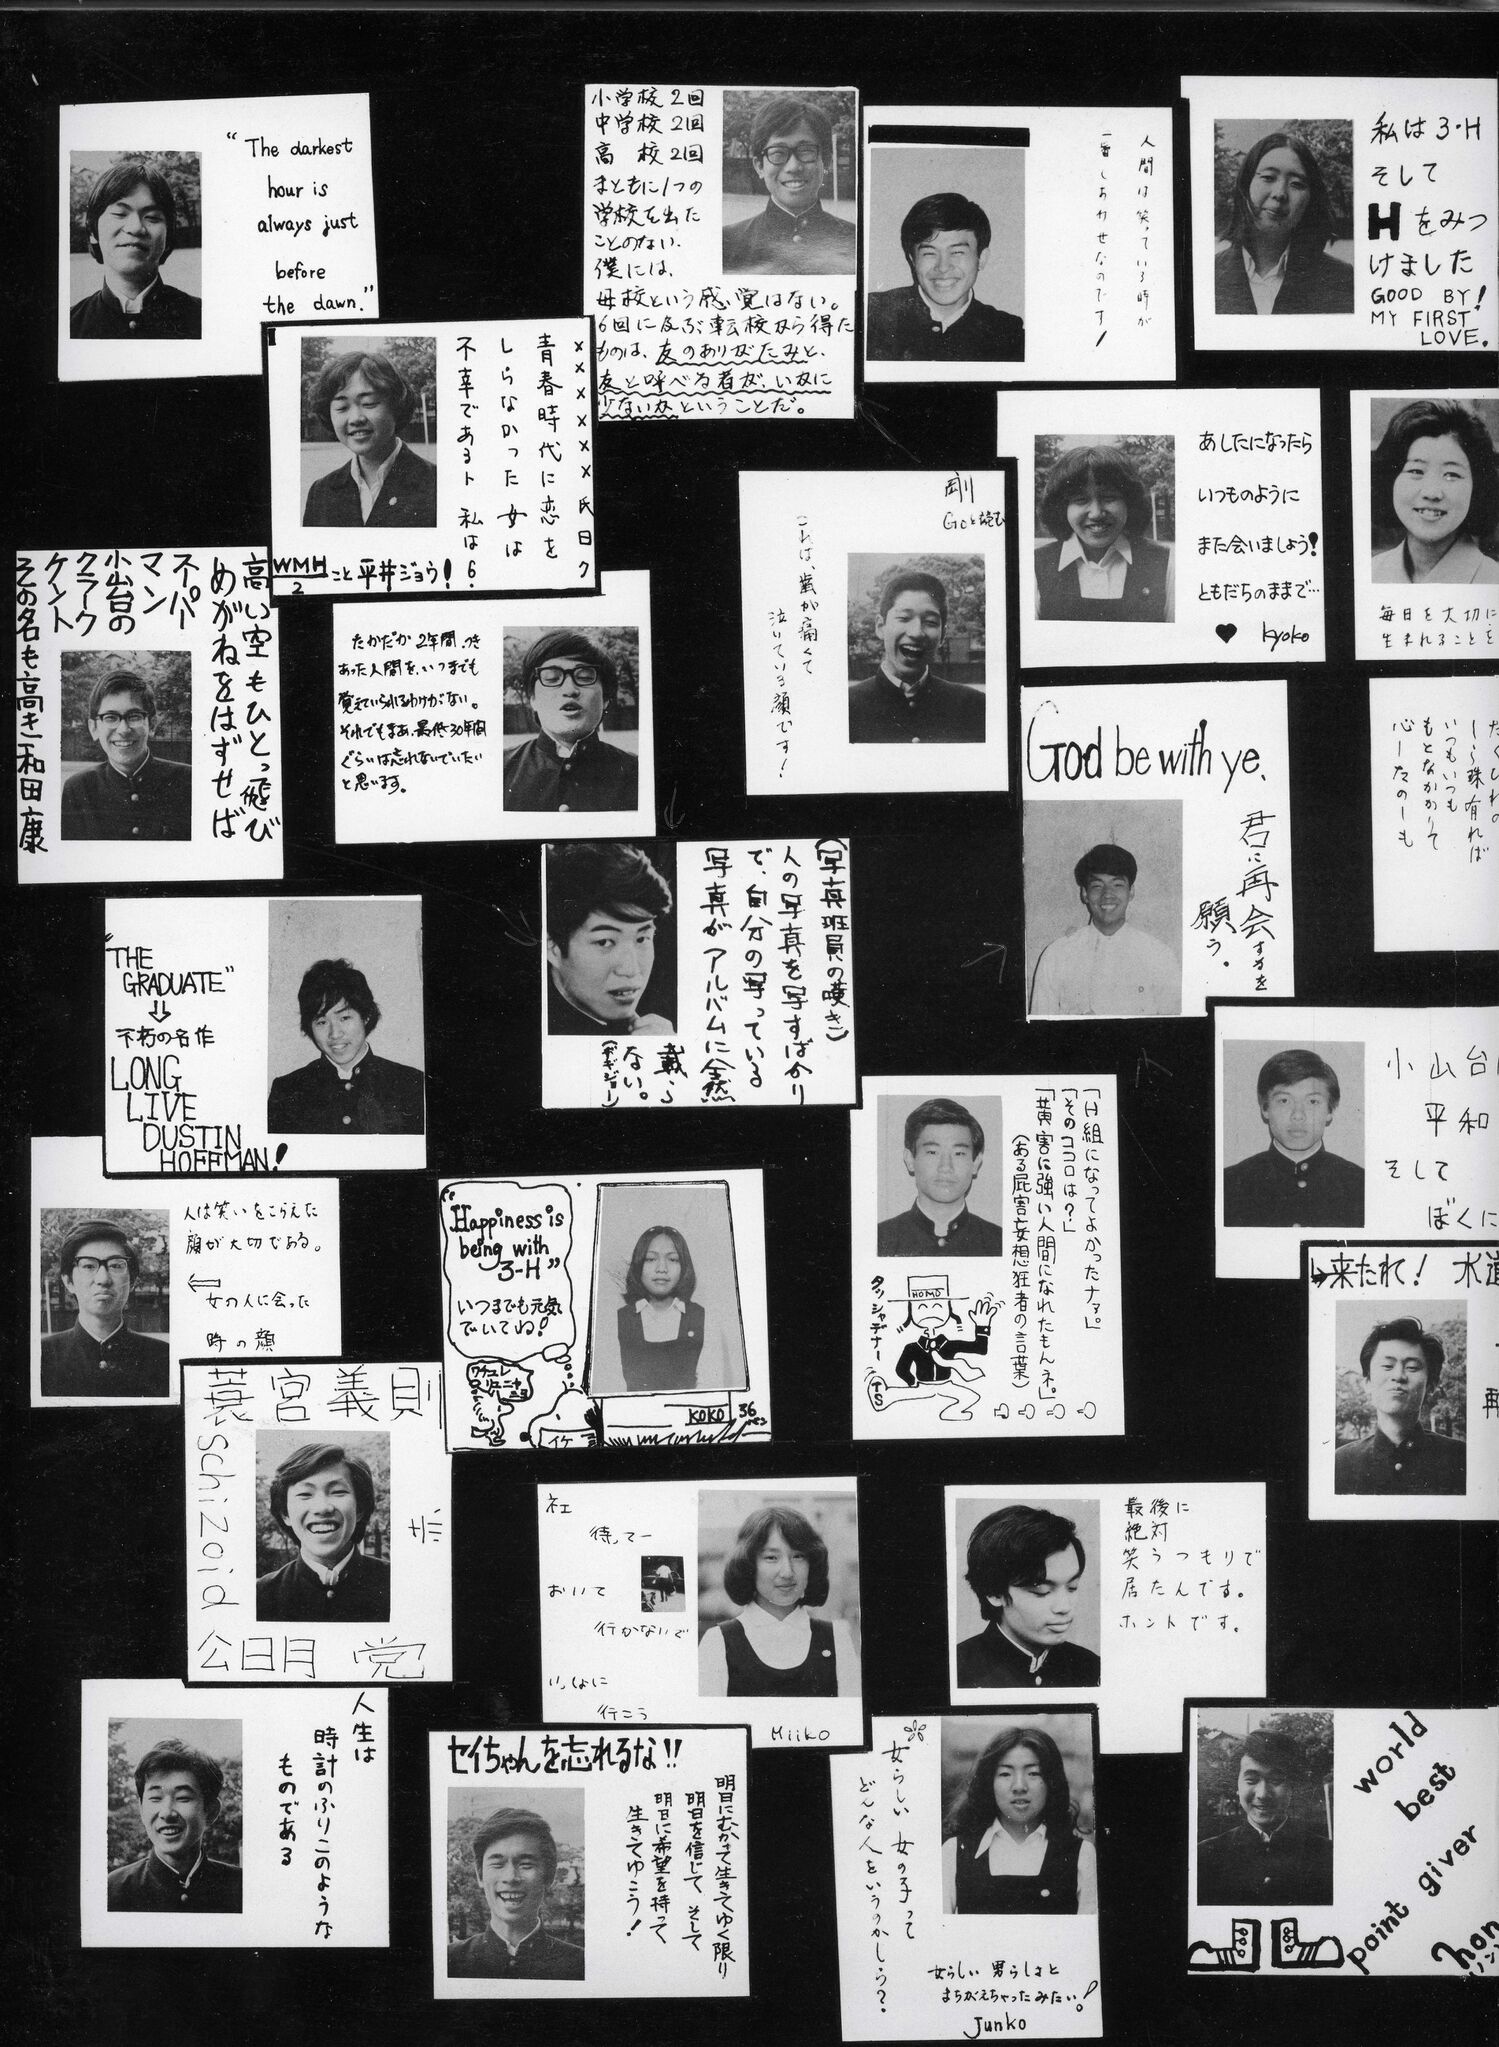 “The darkest
hour is
always just
before
the dawn.”
小学校2回
中学校2回
高　校2回
まともに1つの
学校を出た
ことのない、
僕には、
母校という感覚はない。
6回に及ぶ転校から得た
ものは、友のありがたみと、
友と呼べる者が、いかに
少ないかということだ。
人間は笑っている時が
一番しあわせなのです!
私は3・H
そして
Hをみつ
けました
GOOD BY!
MY FIRST
LOVE.
××××××氏曰ク
青春時代に恋を
しらなかった女は
不幸であるト 私は6.
WMH
2
こと平井ジョウ!
剛
Goと読む
これは、歯が痛くて
泣いている顔です!
あしたになったら
いつものように
また会いましょう!
ともだちのままで…
♥ Kyoko
毎日を大切に
生まれることを
高い空もひとっ飛び
めがねをはずせば
スーパー
マン
小山台の
クラーク
ケント
その名も高き和田康
たかだか2年間、つき
あった人間を、いつまでも
覚えていられるわけがない。
それでもまあ、最低30年間
ぐらいは忘れないでいたい
と思います。
God be with ye.
君に再会するを
願う。
しら珠有れば
いつもいつも
もとなかかりて
“THE
GRADUATE”
⇩
不朽の名作
LONG
LIVE
DUSTIN
HOFFMAN!
(写真班員の嘆き)
人の写真を写すばかり
で、自分の写っている
写真がアルバムに全然
載らない。
小山台
平和
そして
ぼくに
「H組になってよかったナァ。」
「そのココロは?」
「黄害に強い人間になれたもんネ。」
(ある屁害妄想狂者の言葉)
HOMO
タッシャデナー
TS
人は笑いをこらえた
顔が大切である。
⇦
女の人に会った
時の顔
“Happiness is
being with
3-H”
いつまでも元気
でいてね!
KOKO
イケ
来たれ! 水道
再
蓑宮義則
Schizoid
公日月 党
社
待ってー
おいて
行かないで
いっしょに
行こう
Miiko
最後に
絶対
笑うつもりで
居たんです。
ホントです。
人生は
時計のふりこのような
ものである
セイちゃんを忘れるな!!
明日にむかって生きてゆく限り
明日を信じて そして
明日に希望を持って
生きてゆこう!
女らしい女の子って
どんな人をいうのかしら?
女らしい 男らしさと
まちがえちゃったみたい!
Junko
world
best
giver
point
hon